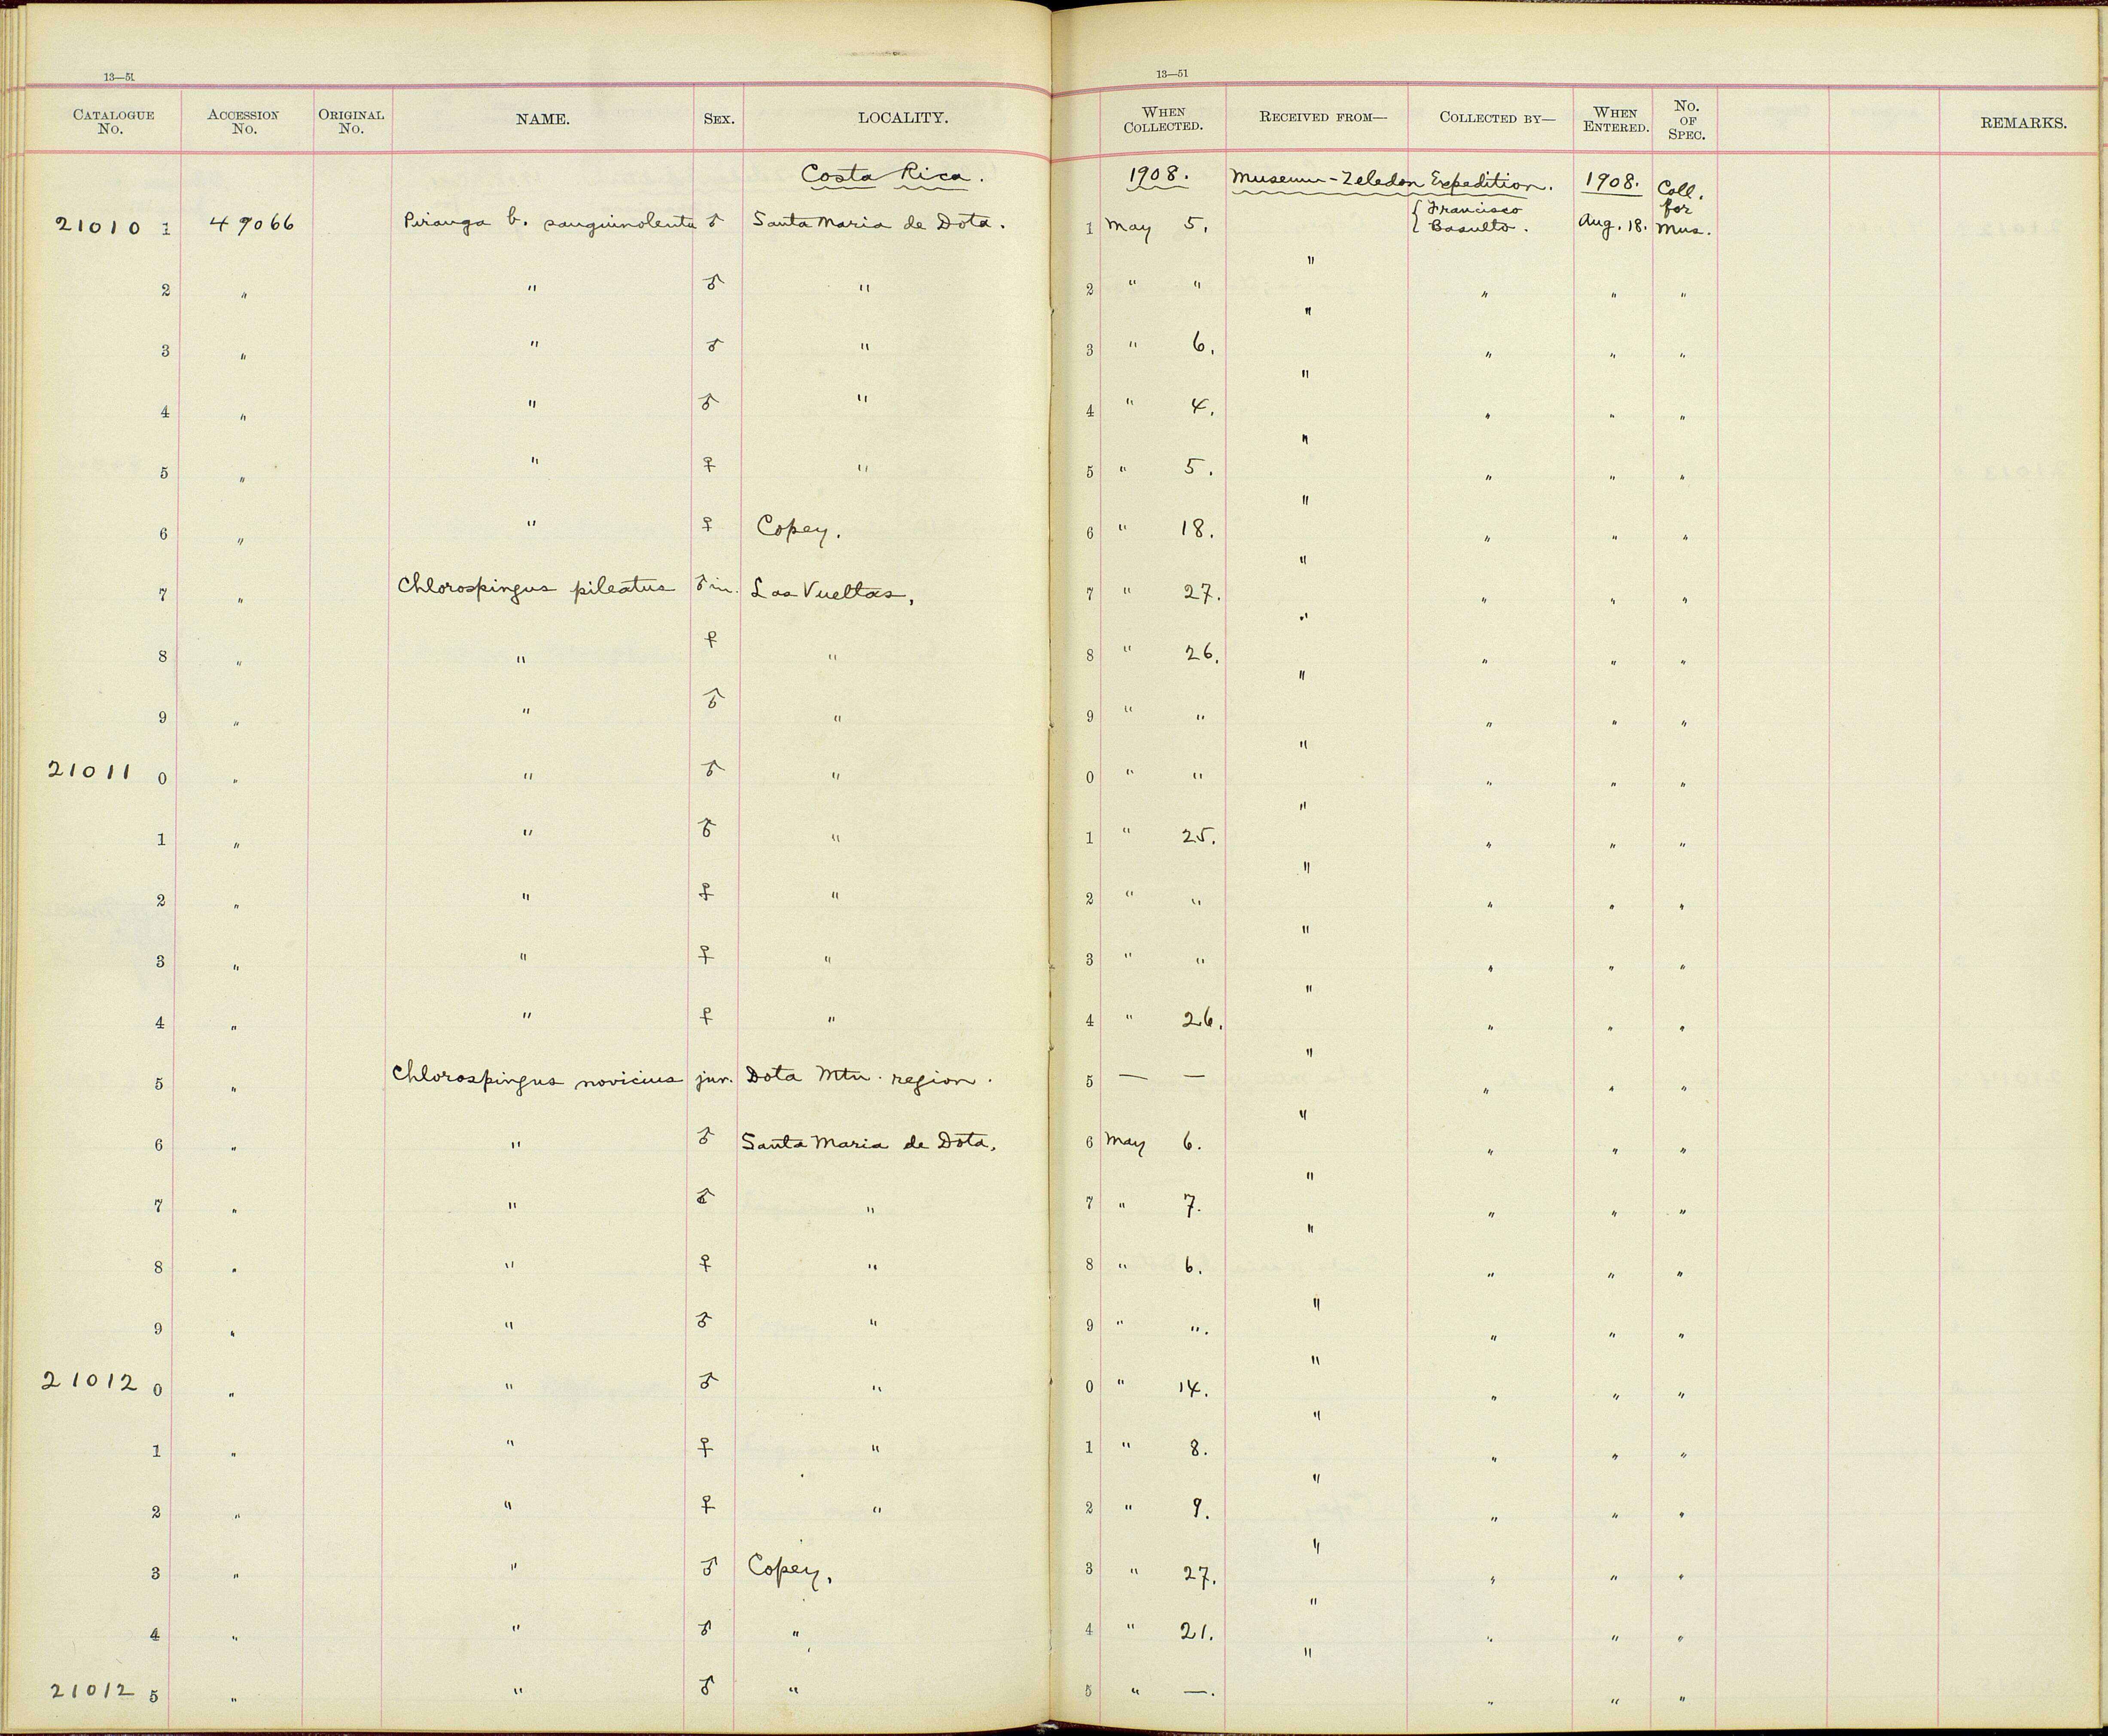 13—51 13—51
CATALOGUE No. ACCESSION No. ORIGINAL No. NAME. SEX. LOCALITY. WHEN COLLECTED. RECEIVED FROM— COLLECTED BY— WHEN ENTERED. No. OF SPEC. REMARKS.
Costa Rica. 1908. Museum-Zeledon Expedition. 1908. Coll. for Mus.
21010 1 49066 Piranga b. sanguinolenta ♂ Santa Maria de Dota. 1 May 5. { Francisco Basulto. Aug. 18.
2 " " ♂ " 2 " " " " " "
3 " " ♂ " 3 " 6. " " " "
4 " " ♂ " 4 " 4. " " " "
5 " " ♀ " 5 " 5. " " " "
6 " " ♀ Copey. 6 " 18. " " " "
7 " Chlorospingus pileatus ♂ im. Las Vueltas, 7 " 27. " " " "
8 " " ♀ " 8 " 26. " " " "
9 " " ♂ " 9 " " " " " "
21011 0 " " ♂ " 0 " " " " " "
1 " " ♂ " 1 " 25. " " " "
2 " " ♀ " 2 " " " " " "
3 " " ♀ " 3 " " " " " "
4 " " ♀ " 4 " 26. " " " "
5 " Chlorospingus novicius juv. Dota Mtn. region. 5 — — " " " "
6 " " ♂ Santa Maria de Dota. 6 May 6. " " " "
7 " " ♂ " 7 " 7. " " " "
8 " " ♀ " 8 " 6. " " " "
9 " " ♂ " 9 " ". " " " "
21012 0 " " ♂ " 0 " 14. " " " "
1 " " ♀ " 1 " 8. " " " "
2 " " ♀ " 2 " 9. " " " "
3 " " ♂ Copey, 3 " 27. " " " "
4 " " ♂ " 4 " 21. " " " "
21012 5 " " ♂ " 5 " —. " " " "